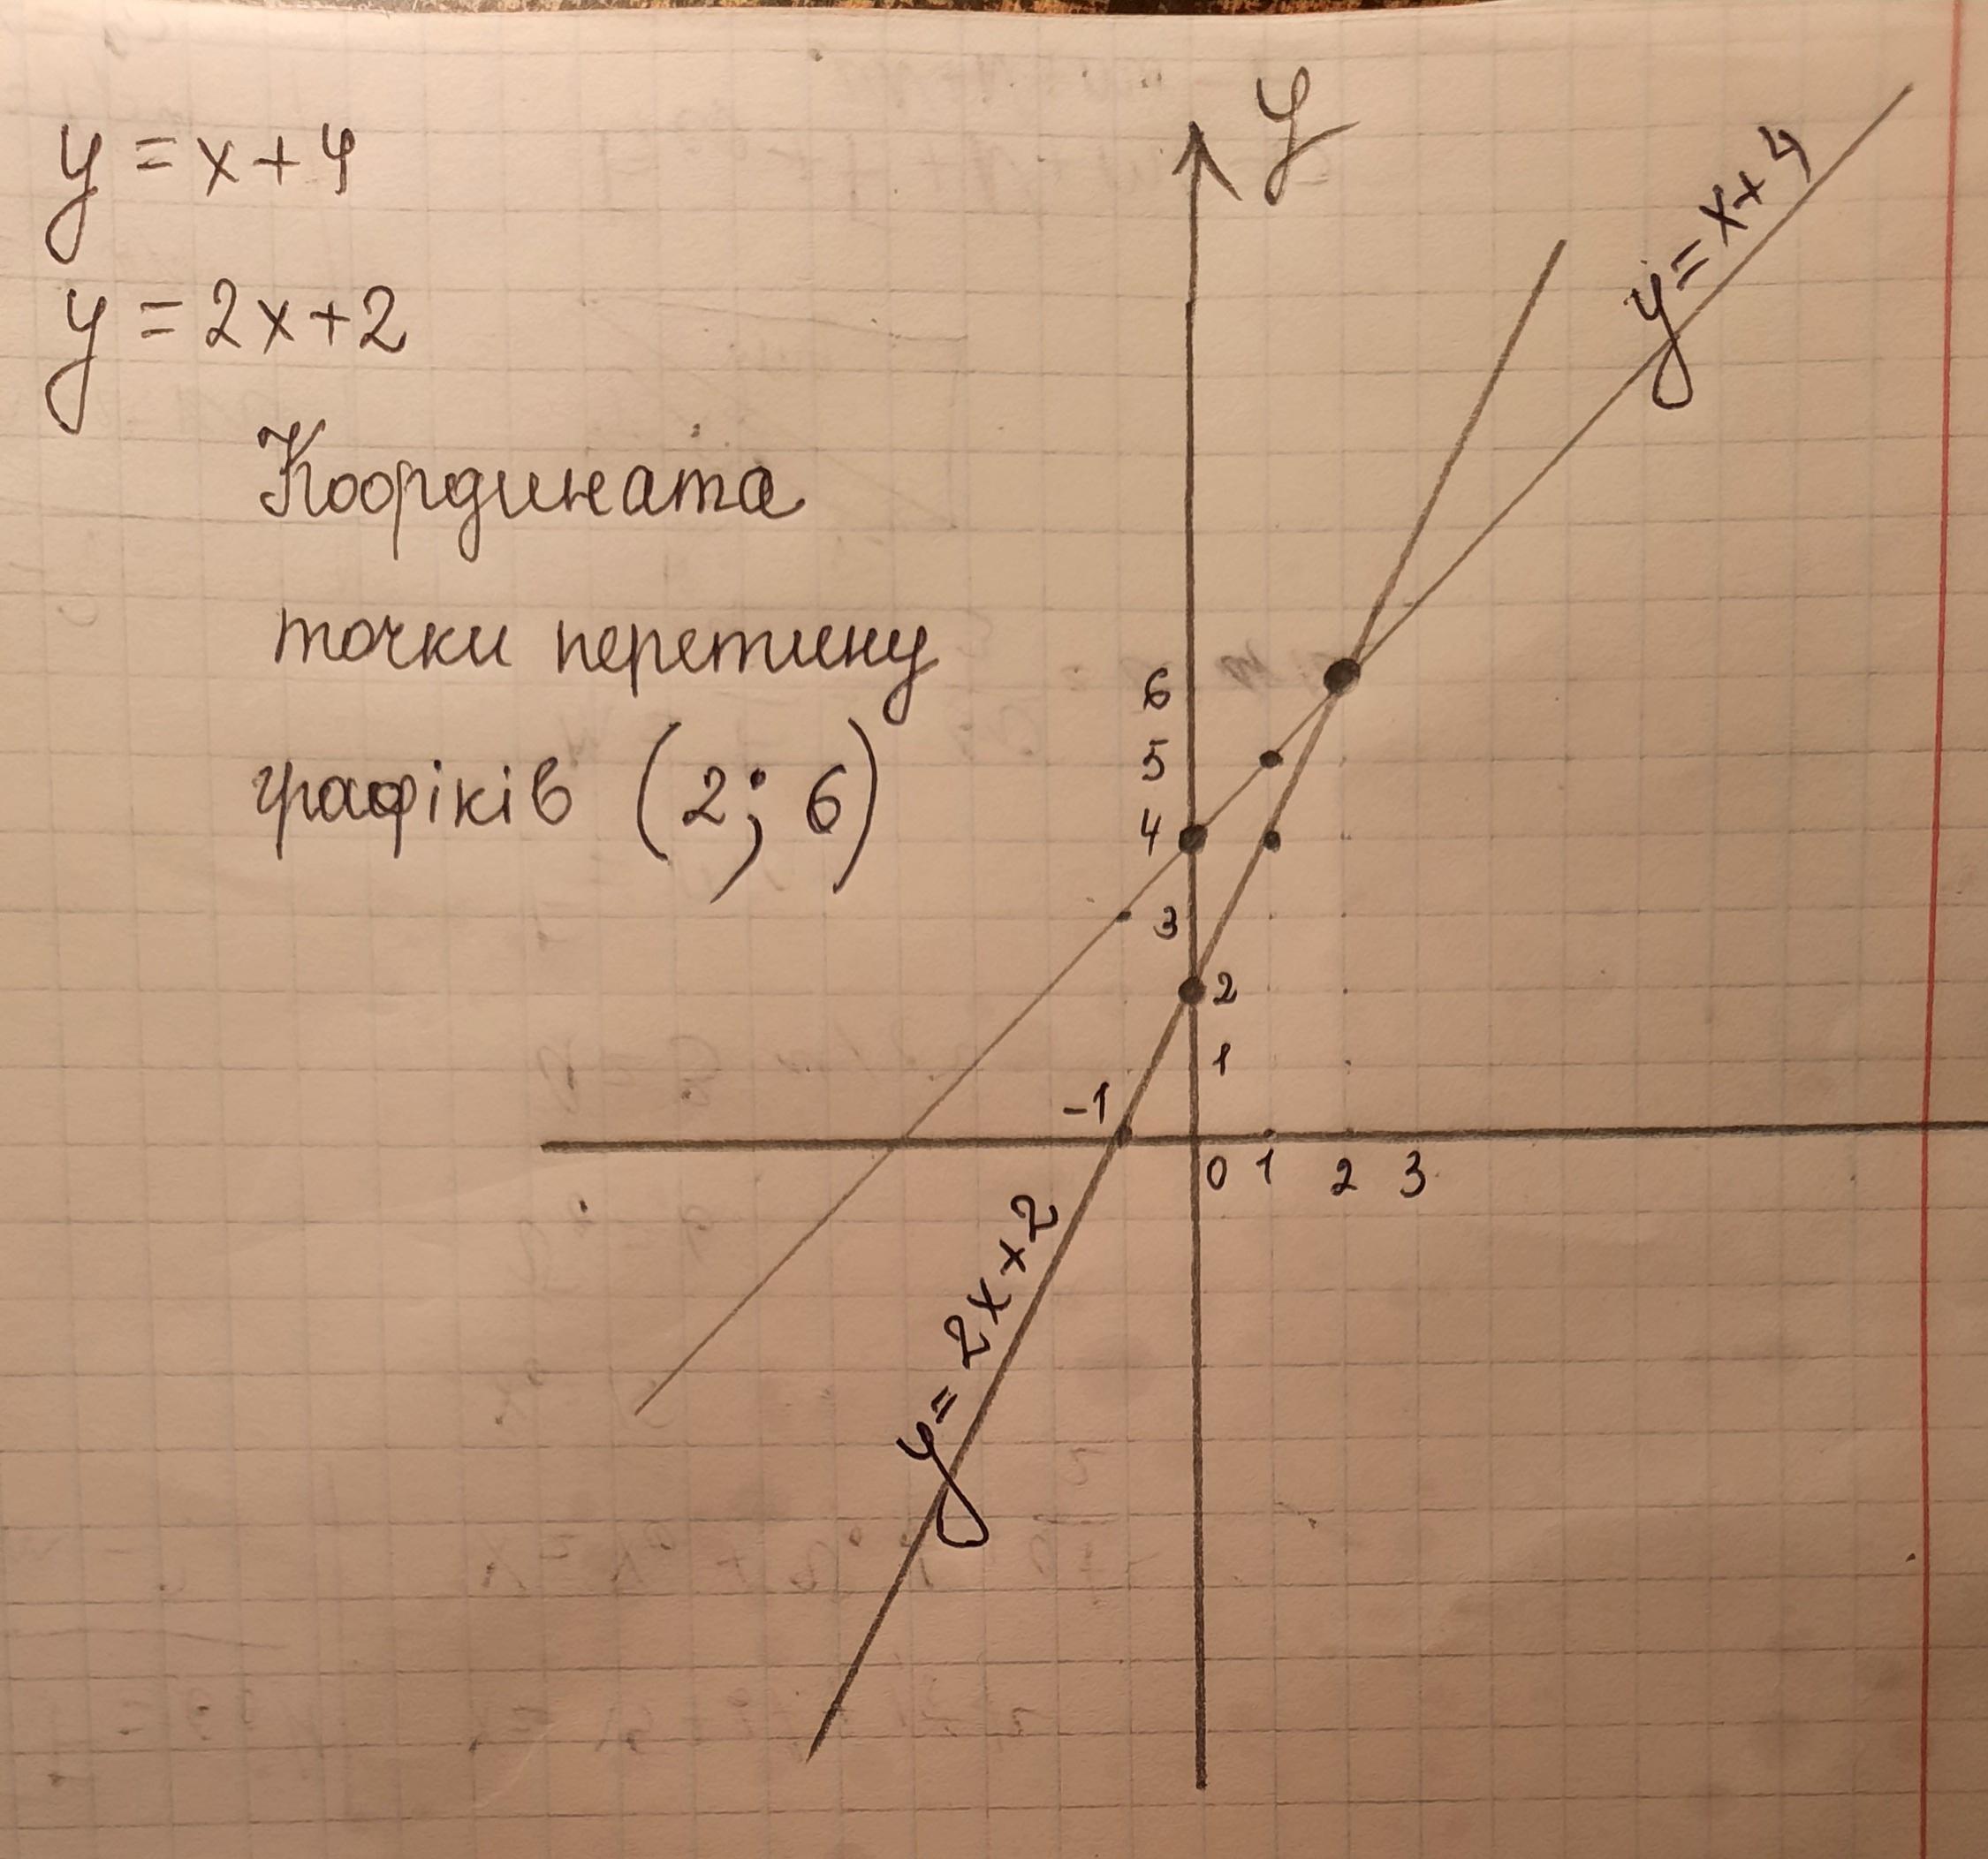 y = x + 4
y = 2x + 2
Координата
точки перетину
графіків (2; 6)
y
y = x + 4
6
5
4
3
2
1
-1
0 1 2 3
y = 2x + 2